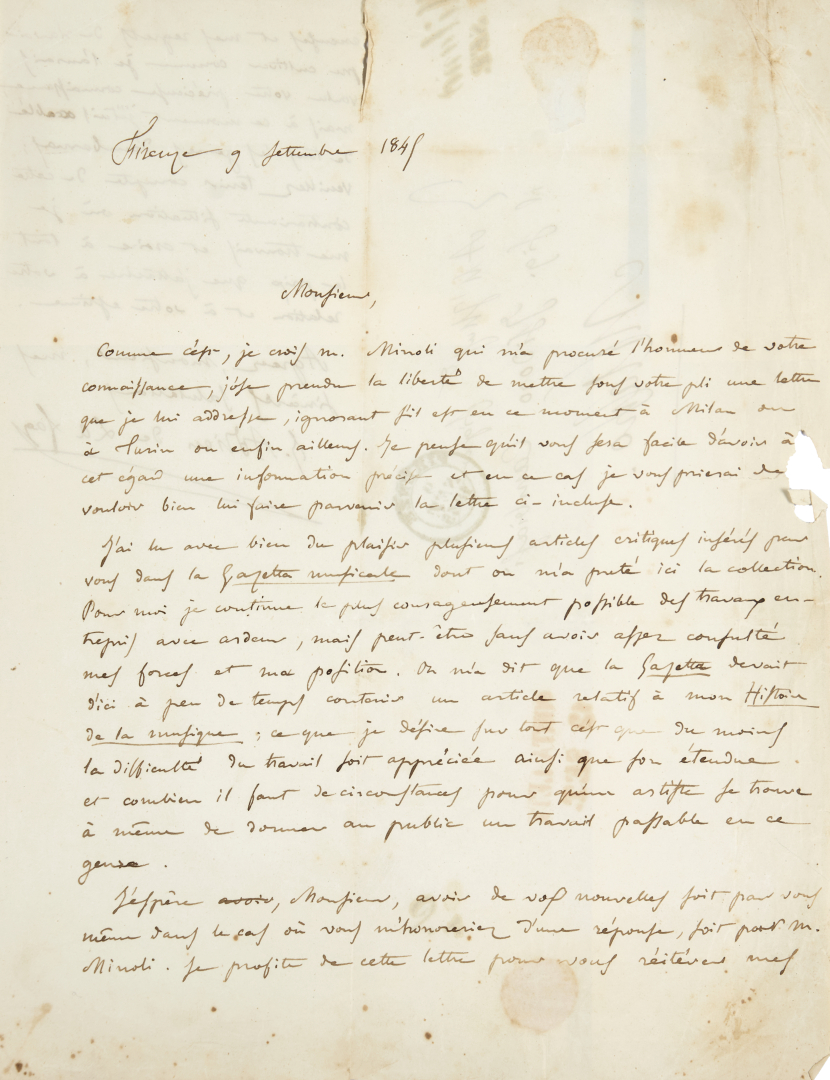 Firenze 9 settembre 1845
Monsieur,
Comme c'est, je crois m. Minoli qui m'a procuré l'honneur de votre
connaissance, j'ose prendre la liberté de mettre sous votre pli une lettre
que je lui addresse, ignorant s'il est en ce moment à Milan ou
à Turin ou enfin ailleurs. Je pense qu'il vous sera facile d'avoir à
cet égard une information précise et en ce cas je vous prierai de
vouloir bien lui faire parvenir la lettre ci-incluse.
J'ai lu avec bien du plaisir plusieurs articles critiques insérés par
vous dans la Gazetta musicale dont on m'a preté ici la collection.
Pour moi je continue le plus courageusement possible des travaux en-
trepris avec ardeur, mais peut-être sans avoir assez consulté
mes forces et ma position. On m'a dit que la Gazetta devait
d'ici à peu de temps contenir un article relatif à mon Histoire
de la musique ; ce que je désire sur tout c'est que du moins
la difficulté du travail soit appréciée ainsi que son étendue
et combien il faut de circonstances pour qu'un artiste se trouve
à même de donner au public un travail passable en ce
genre.
J'espère avoir, Monsieur, avoir de vos nouvelles soit par vous
même dans le cas où vous m'honoreriez d'une réponse, soit par m.
Minoli. Je profite de cette lettre pour vous réitérer mes